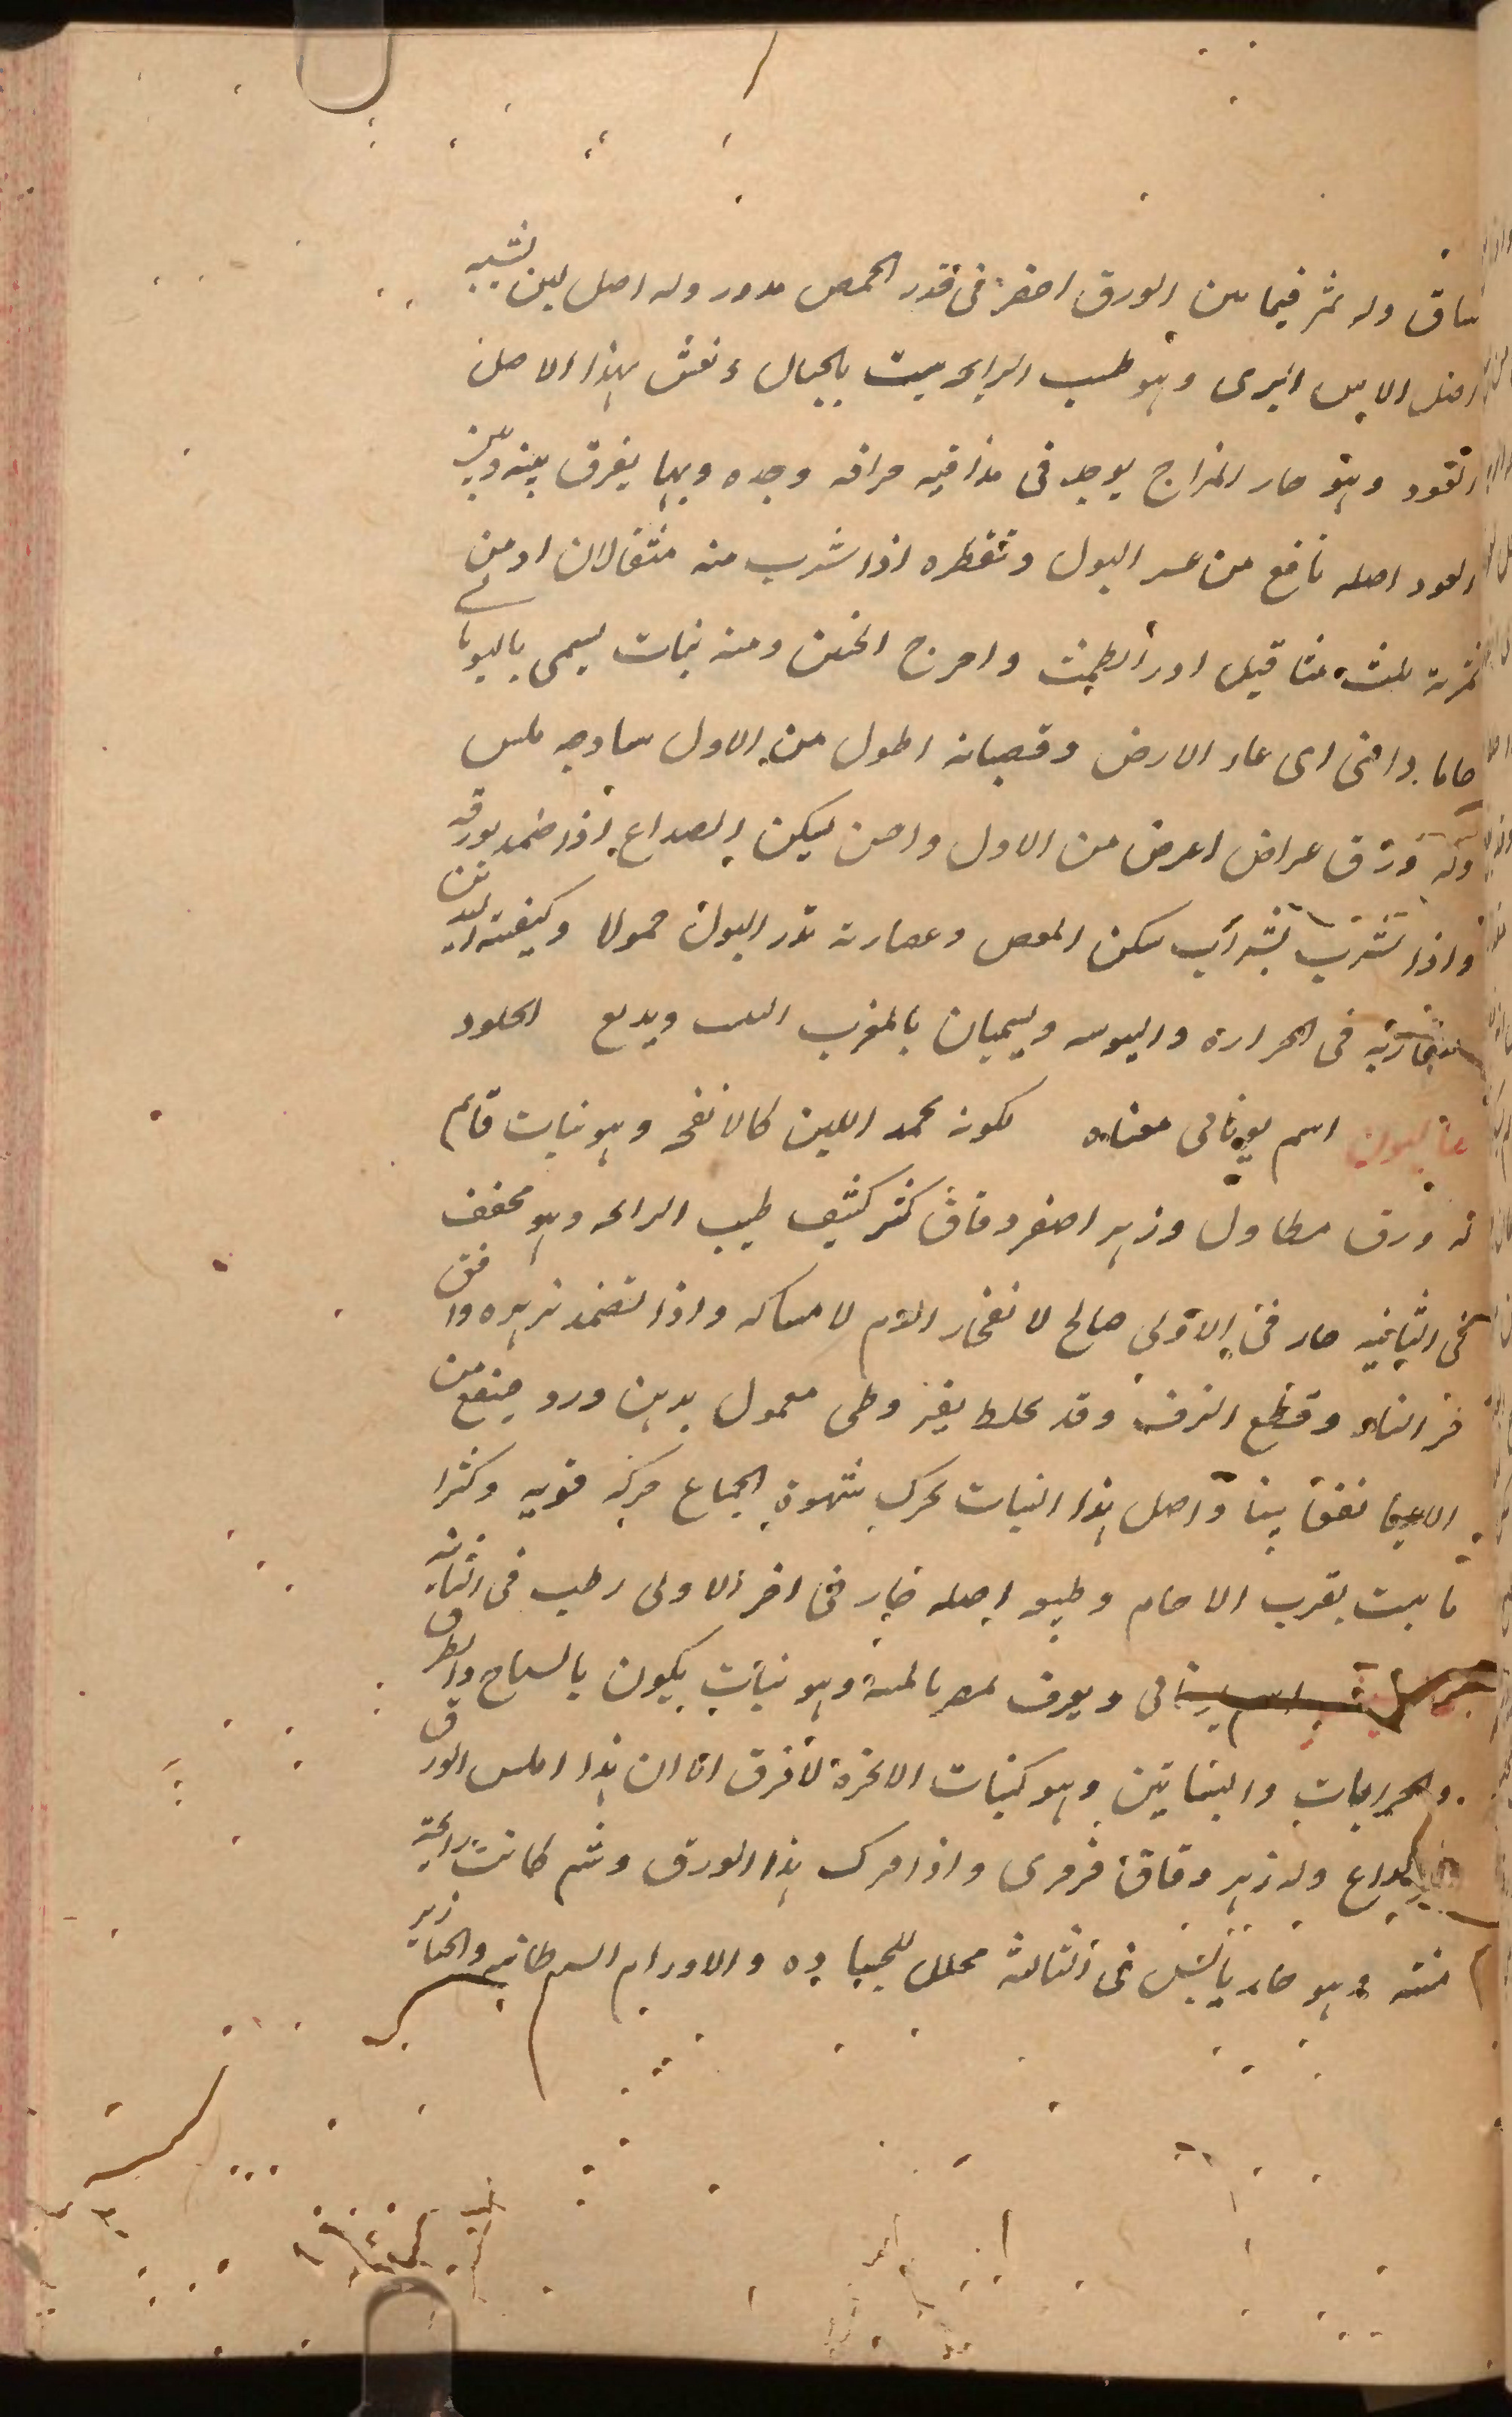 ساق وله ثمر فيما بين الورق اخضر فى قدر الحمص مدور وله اصل لين يشبه
اصل الاس البرى وهو طيب الرايحه ينبت بالجبال وبغش بهذا الاصل
العود وهو حار المزاج يوجد فى مذاقته حرافه وحده وبها يفرق بينه وبين
العود اصله نافع من عسر البول وتقطره اذا شرب منه مثقالان او من
ثمرته ثلث مثاقيل ادر الطمث واخرج الجنين ومنه نبات يسمى باليونا
خاما دافنى اى غار الارض وقضبانه اطول من الاول ساذجه ملس
وله ورق عراض اعرض من الاول واحسن يسكن الصداع اذا ضمد بورقه
واذا شرب بشراب سكن المغص وعصارته تدر البول حمولا وكيفيته
متقاربه فى الحراره واليبوسه ويسميان بالمغرب ويدبغ الجلود
غاليون اسم يونانى معناه لكونه يجمد اللبن كالانفحه وهو نبات قايم
له ورق مطاول وزهر اصفر دقاق كثر كثيف طيب الرايحه وهو مجفف
فى الثانيه حار فى الاولى صالح لانفجار الدم لامساكه واذا تضمد بزهره وافق
حرق النار وقطع النزف وقد يخلط بقيروطى معمول بدهن ورد فينفع من
الاعيا نفعا بينا واصل هذا النبات يحرك شهوة الجماع حركه قويه وكثرا
ما ينبت بقرب الاجام وطبع اصله حار فى اخر الاولى رطب فى الثانيه
اسم يونانى ويعرف بمصر بالمنتنة وهو نبات يكون بالسباخ والطرق
والخرابات والبساتين وهو كنبات الانجرة لا فرق الا ان هذا املس الورق
وله زهر دقاق فرفرى واذا فرك هذا الورق وشم كانت رايحته
منتنه وهو حار يابس فى الثالثه محلل للجساوه والاورام السرطانيه والخنازير